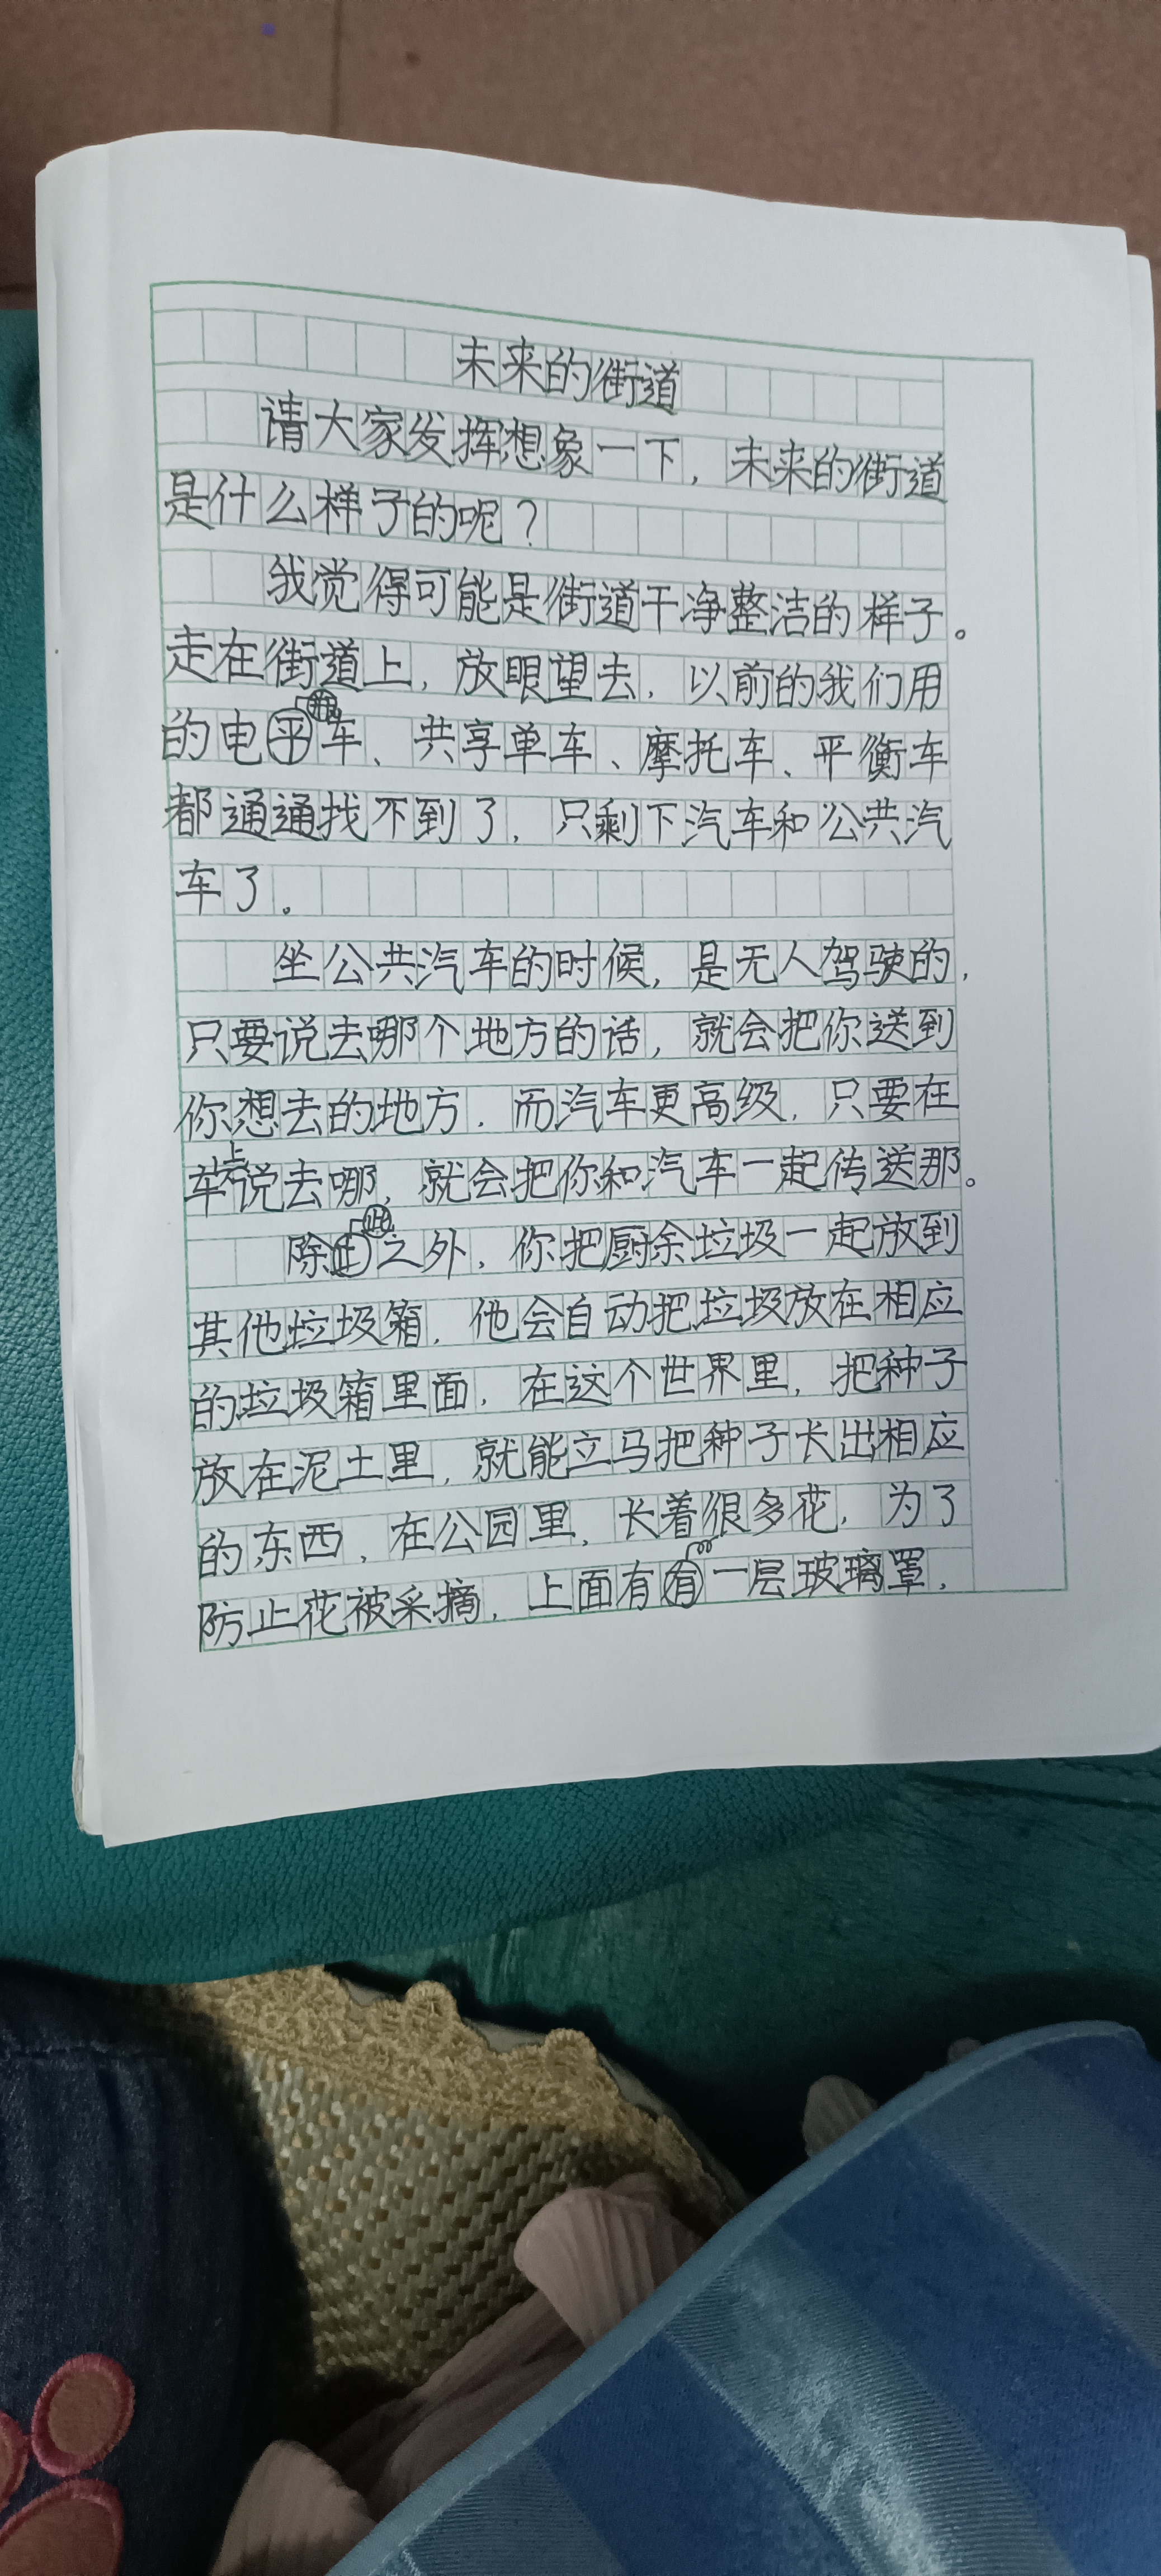 未来的街道
请大家发挥想象一下，未来的街道
是什么样子的呢？
我觉得可能是街道干净整洁的样子。
走在街道上，放眼望去，以前的我们用
的电车、共享单车、摩托车、平衡车
都通通找不到了，只剩下汽车和公共汽
车了。
坐公共汽车的时候，是无人驾驶的，
只要说去哪个地方的话，就会把你送到
你想去的地方，而汽车更高级，只要在
车上说去哪，就会把你和汽车一起传送那。
除此之外，你把厨余垃圾一起放到
其他垃圾箱，他会自动把垃圾放在相应
的垃圾箱里面，在这个世界里，把种子
放在泥土里，就能立马把种子长出相应
的东西，在公园里，长着很多花，为了
防止花被采摘，上面有一层玻璃罩，